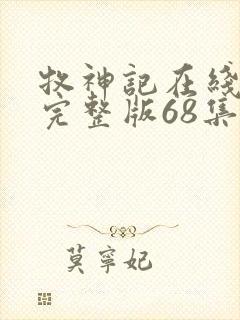 牧神記在綫
完整版68集
莫寧妃